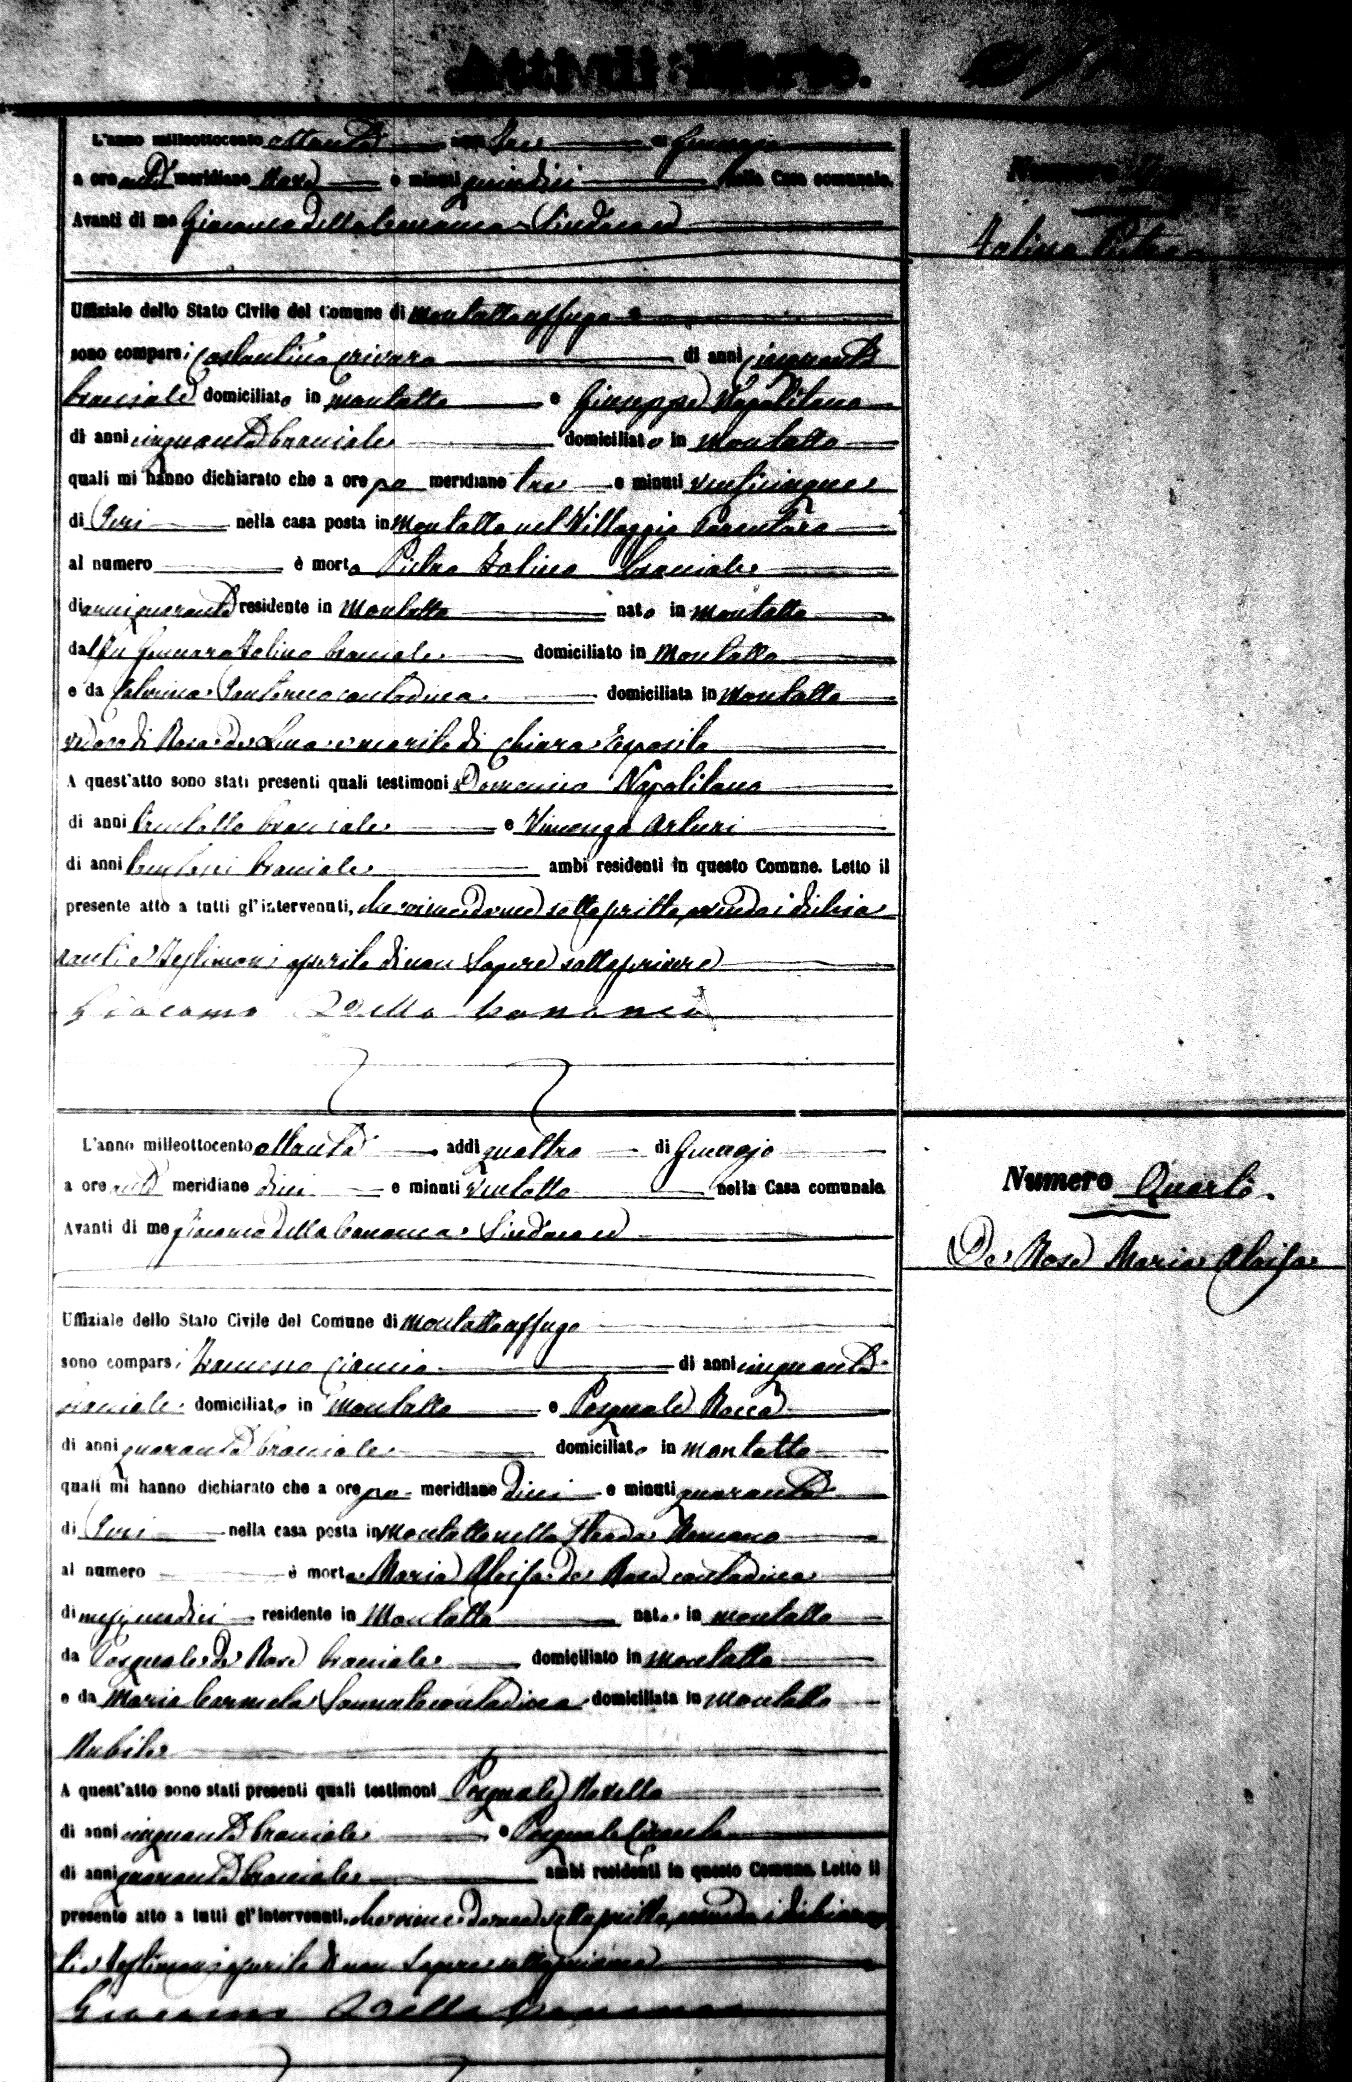 Atti di Morte.
L'anno milleottocento ottanta addì tre di Gennajo
a ore anti meridiane nove e minuti quindici nella Casa comunale.
Avanti di me Giacomo della Sindaco ed
Numero
Pietro
Uffiziale dello Stato Civile del Comune di Montaltouffugo
sono comparsi Costantino Crivaro di anni cinquanta
bracciale domiciliato in Montalto e Giuseppe Napolitano
di anni cinquanta bracciale domiciliato in Montalto
quali mi hanno dichiarato che a ore po meridiane tre e minuti venticinque
di Jeri nella casa posta in Montalto nel Villaggio Parantoro
al numero è morto Pietro bracciale
di anni quaranta residente in Montalto nato in Montalto
dal fu Gennaro bracciale domiciliato in Montalto
e da Caterina contadina domiciliata in Montalto
vedovo di Rosa de Luca e marito di Chiara Esposito
A quest'atto sono stati presenti quali testimoni Domenico Napolitano
di anni trentotto bracciale e Vincenzo Arturi
di anni bracciale ambi residenti in questo Comune. Letto il
presente atto a tutti gl'intervenuti, sottoscritto, avendo i dichia
ranti e Testimoni asserito di non Sapere sottoscrivere
Giacomo della
L'anno milleottocento ottanta addì quattro di Gennajo
a ore anti meridiane dieci e minuti ventotto nella Casa comunale.
Avanti di me Giacomo della Sindaco ed
Numero Quarto.
De Rose Maria Aloisa
Uffiziale dello Stato Civile del Comune di Montaltouffugo
sono comparsi Francesco Ciancio di anni cinquanta
bracciale domiciliato in Montalto e Pasquale Rocca
di anni quaranta bracciale domiciliato in Montalto
quali mi hanno dichiarato che a ore po meridiane dieci e minuti quaranta
di Jeri nella casa posta in Montalto nella Strada
al numero è morta Maria Aloisa de Rose contadina
di mesi undici residente in Montalto nata in Montalto
da Pasquale de Rose bracciale domiciliato in Montalto
e da Maria Carmela contadina domiciliata in Montalto
Nubile
A quest'atto sono stati presenti quali testimoni Pasquale Novello
di anni cinquanta bracciale e Pasquale
di anni quaranta bracciale ambi residenti in questo Comune. Letto il
presente atto a tutti gl'intervenuti, sottoscritto, avendo i dichiaran
ti e Testimoni asserito di non Sapere sottoscrivere
Giacomo della